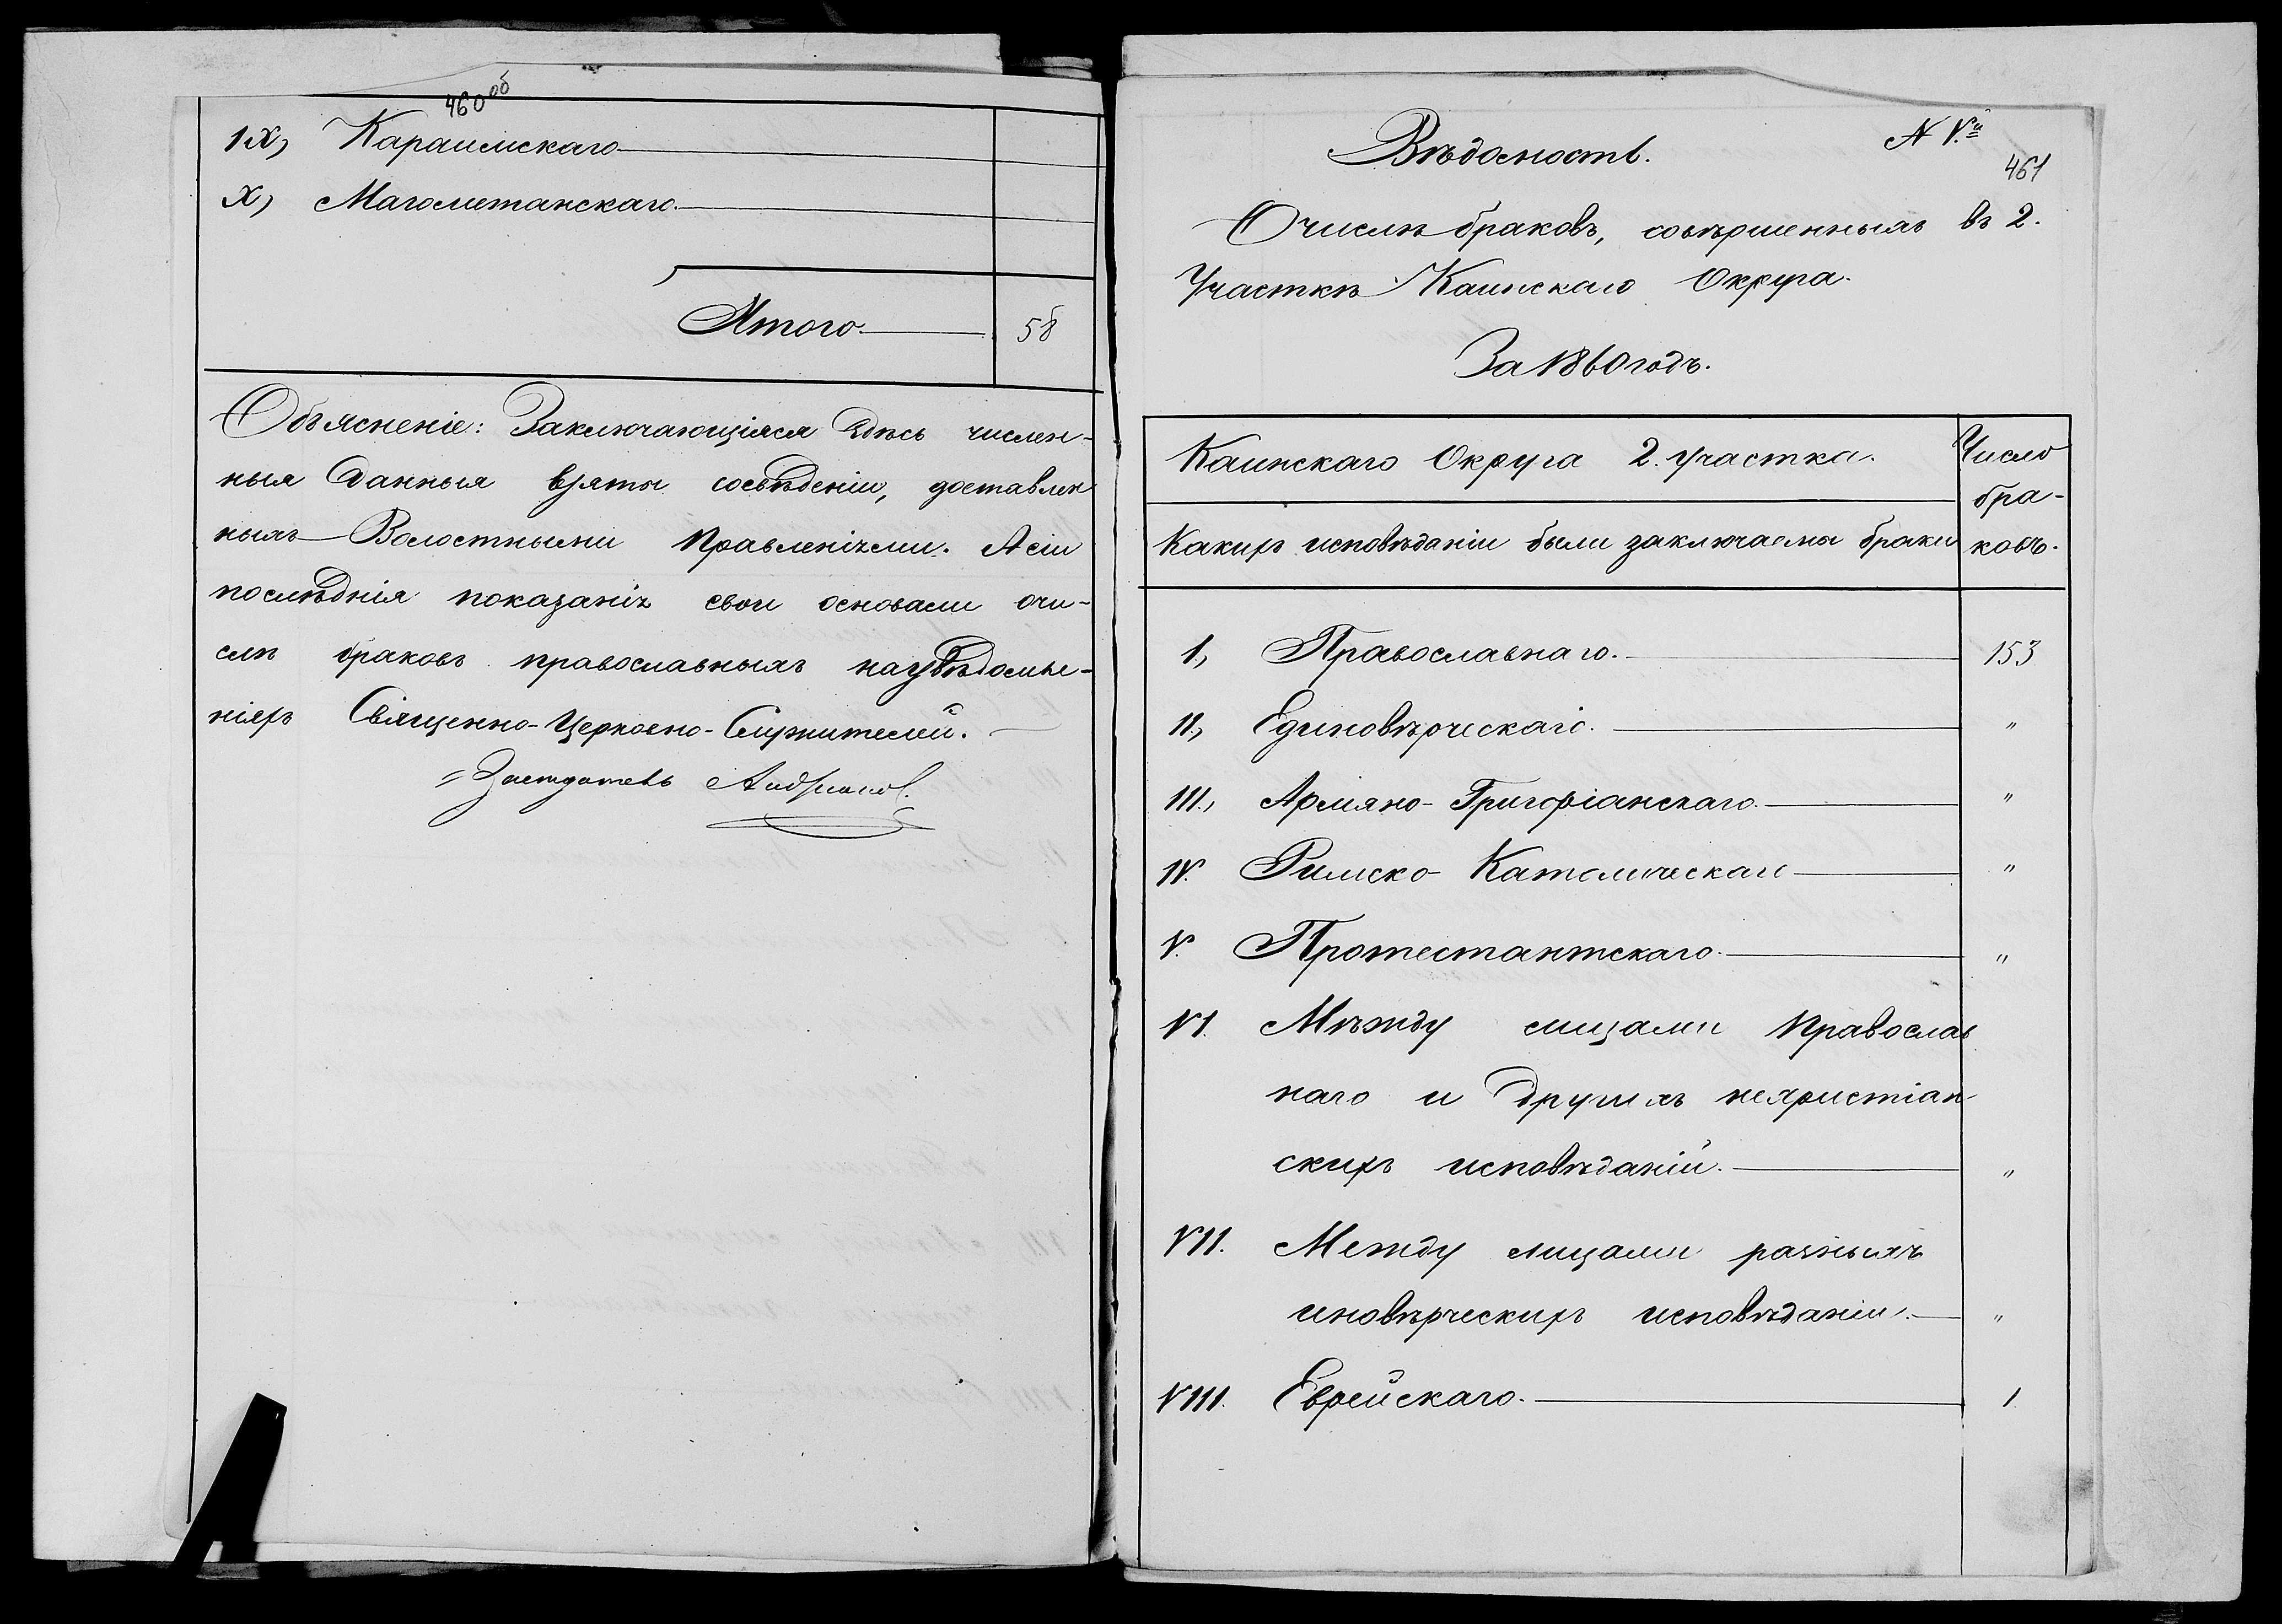 460об
IX, Караимскаго
X, Магометанскаго.
Итого 58
Объясненіе: Заключающіяся здѣсь числен-
ныя данныя взяты сосвѣденіи, доставлен
ныхъ Волостными Правленіями. Асіи
послѣднія показанія свои основали очи-
слѣ браковъ православныхъ наувѣдомле-
ніяхъ Священно-Церковно-Служителей.
Засѣдатель
Вѣдомость. N V.й
461
О числѣ браковъ, совершенныхъ въ 2.
Участкѣ Каинскаго Округа.
За 1860 годъ.
Каинскаго Округа 2. участка. Число
бра-
Какихъ исповѣданіи были заключаемы браки ковъ.
I., Православнаго. 153
II., Единовѣрческаго. "
III., Армяно-Григоріанскаго. "
IV. Римско-Католическаго "
V. Протестантскаго. "
VI. Мѣжду лицами Православ
наго и другихъ нехристіан-
скихъ исповѣданій. "
VII. Между лицами разныхъ
иновѣрческихъ исповѣданіи. "
VIII. Еврейскаго. 1